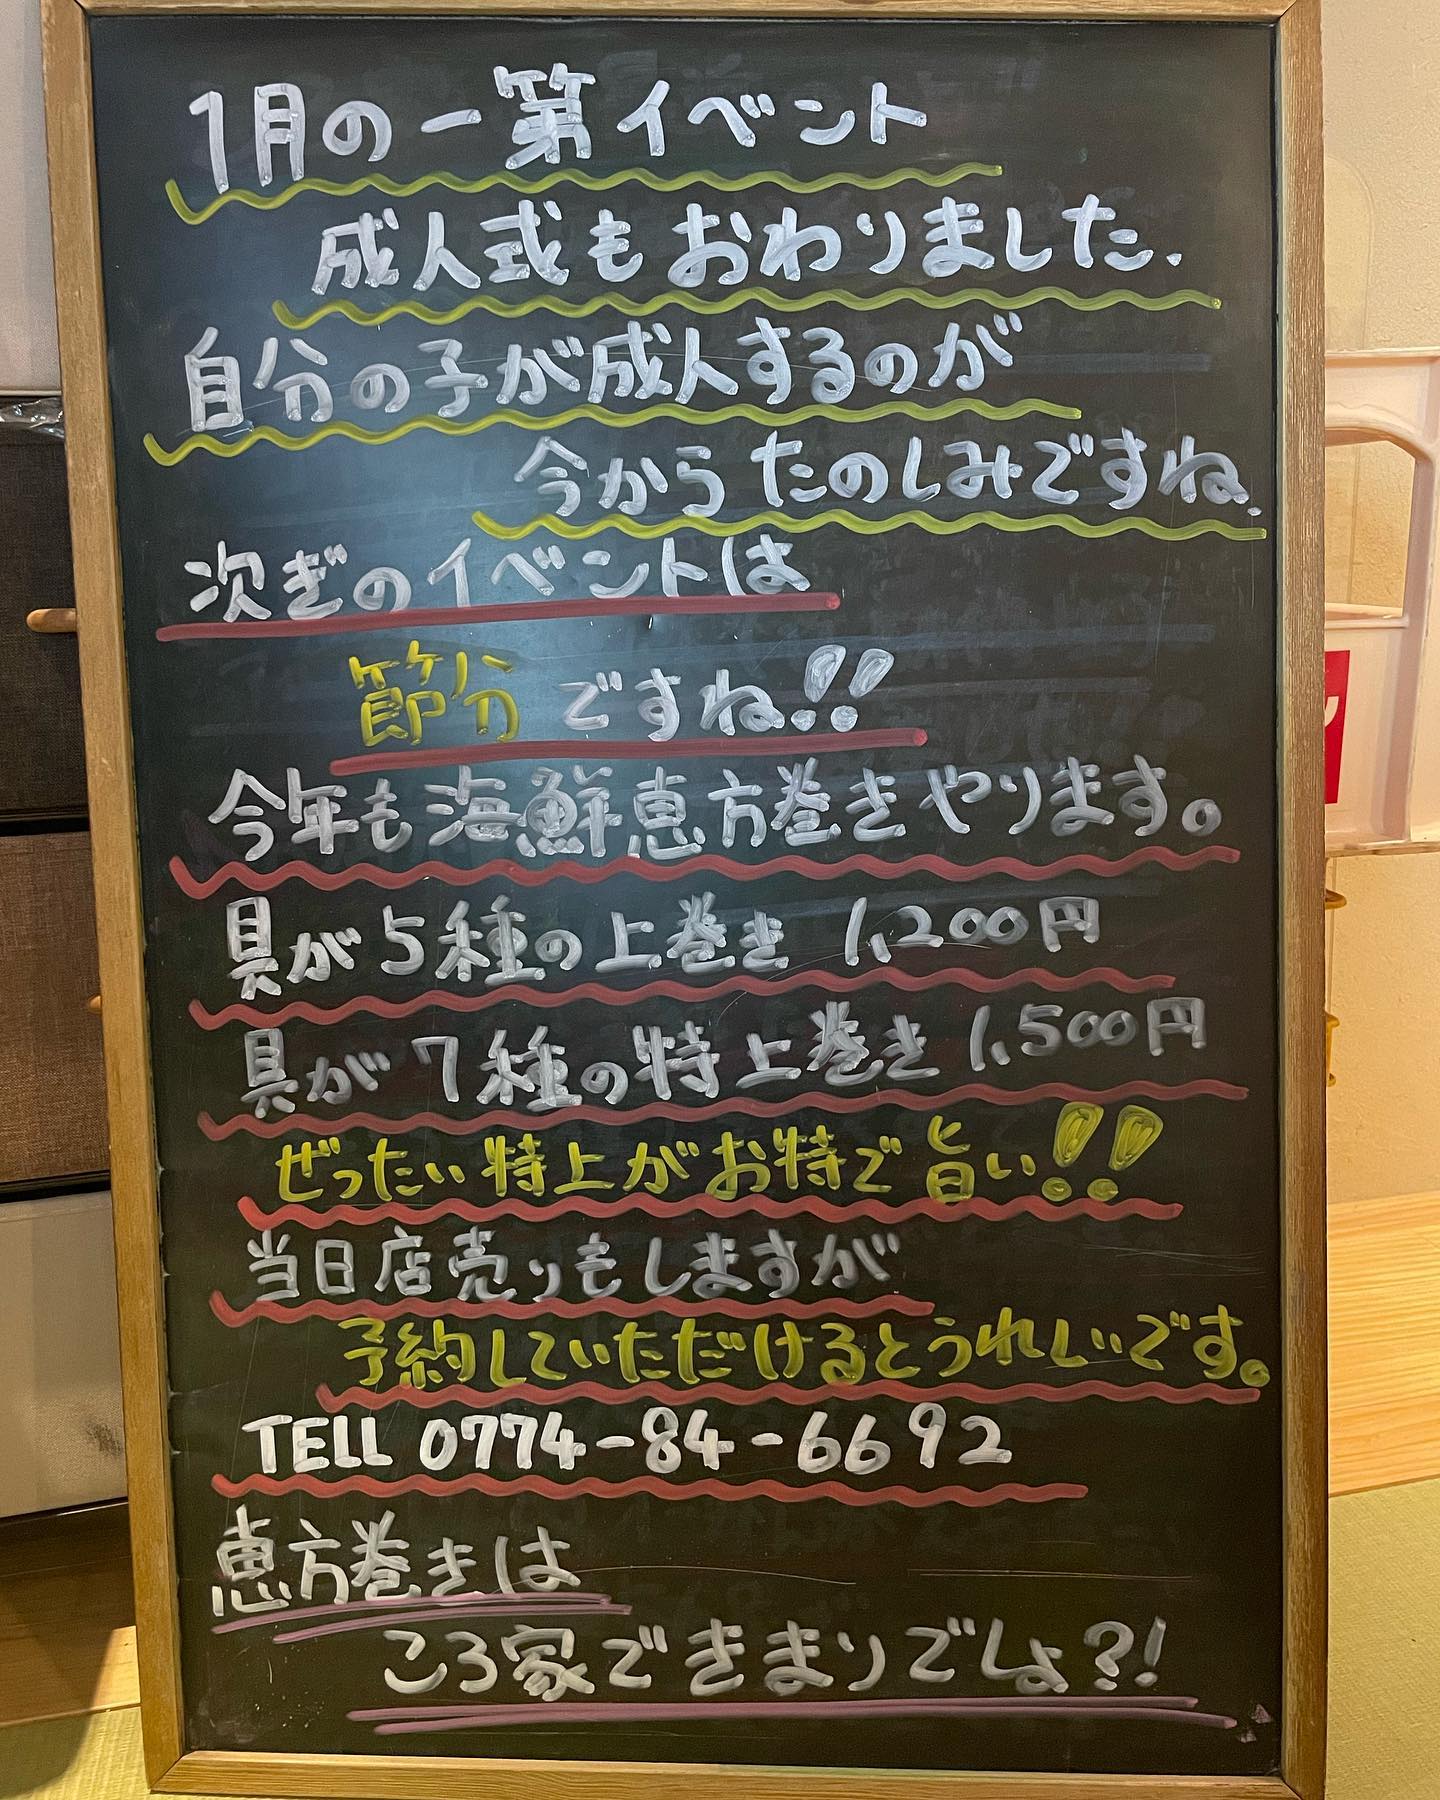 1月の一第イベント
成人式もおわりました.
自分の子が成人するのが
今からたのしみですね.
次ぎのイベントは
節分ですね!!
今年も海鮮恵方巻きやります。
具が5種の上巻き 1,200円
具が7種の特上巻き 1,500円
ぜったい特上がお特で旨い!!
当日店売りもしますが
予約していただけるとうれしいです。
TELL 0774-84-6692
恵方巻きは
ころ家できまりでしょ?!